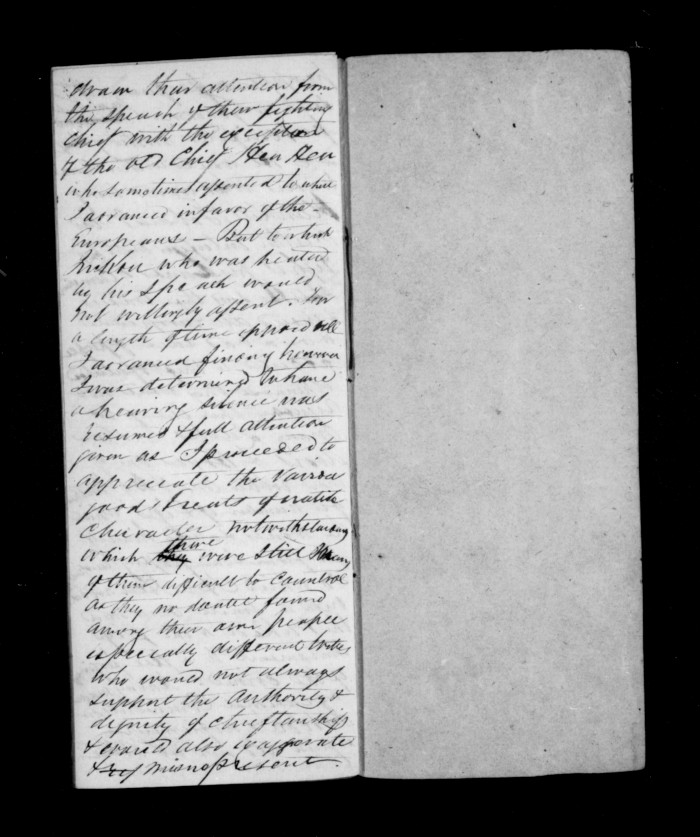 draw their attention from
the speach of their fighting
chief with the exception
of the old Chief Heu Heu
who sometimes assented to what
I advanced in favor of the
Europeans – But to which
who was heated
by his speach would
not willingly assent. For
a length of time opposed all
I advanced finding however
I was determined to have
a hearing silence was
resumed & full attention
given as I proceeded to
appreciate the various
good treats of native
character notwithstanding
which there were still many
of them difficult to countrol
as they no doubt found
among their own people
especially different tribes
who would not always
support the authority &
dignity of chieftanship
& would also exagerate
& misrepresent.